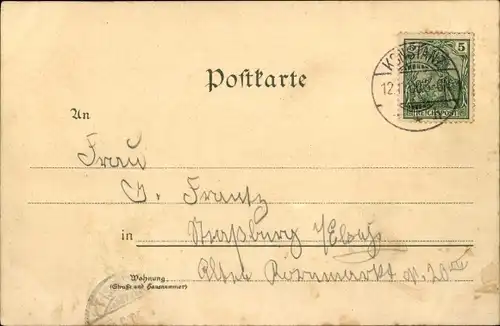 Postkarte
KONSTANZ
5
12.
REICHSPOST
An
Frau
Frantz
in Straßburg i/Elsaß
Wohnung
(Straße und Hausnummer)
Alter Kornmarkt N. 20